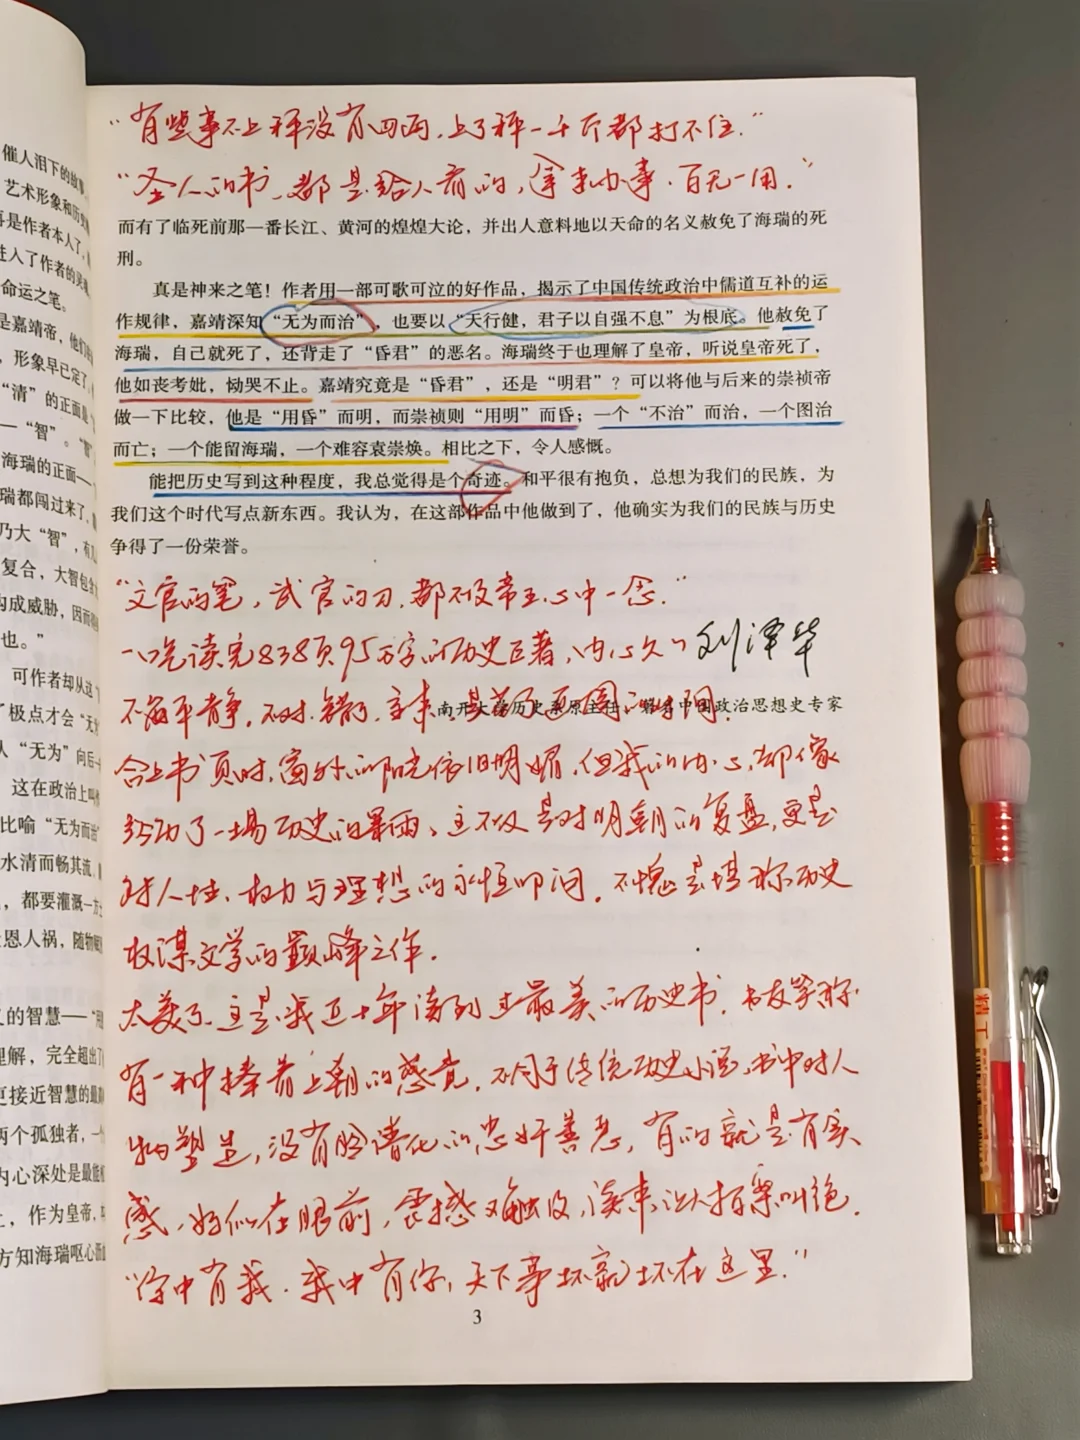 催人泪下的故事
艺术形象和历
是作者本人了，
进入了作者的灵魂
命运之笔。
是嘉靖帝，他们
，形象早已定了，
“清”的正面是
——“智”。“智
海瑞的正面——
瑞都闯过来了，
乃大“智”，有
复合，大智包含
构成威胁，因而
也。”
可作者却从这
了极点才会“无
人“无为”向后
这在政治上叫
比喻“无为而治
水清而畅其流，
，都要灌溉一方
恩人祸，随物赋
的智慧——“用
理解，完全超出了
更接近智慧的最
两个孤独者，一
内心深处是最能
，作为皇帝，
方知海瑞呕心
“有些事不上秤没有四两，上了秤一千斤都打不住。”
“圣人的书，都是给人看的，拿来办事，百无一用。”
而有了临死前那一番长江、黄河的煌煌大论，并出人意料地以天命的名义赦免了海瑞的死
刑。
真是神来之笔！作者用一部可歌可泣的好作品，揭示了中国传统政治中儒道互补的运
作规律，嘉靖深知“无为而治”，也要以“天行健，君子以自强不息”为根底。他赦免了
海瑞，自己就死了，还背走了“昏君”的恶名。海瑞终于也理解了皇帝，听说皇帝死了，
他如丧考妣，恸哭不止。嘉靖究竟是“昏君”，还是“明君”？可以将他与后来的崇祯帝
做一下比较，他是“用昏”而明，而崇祯则“用明”而昏；一个“不治”而治，一个图治
而亡；一个能留海瑞，一个难容袁崇焕。相比之下，令人感慨。
能把历史写到这种程度，我总觉得是个奇迹。和平很有抱负，总想为我们的民族，为
我们这个时代写点新东西。我认为，在这部作品中他做到了，他确实为我们的民族与历史
争得了一份荣誉。
“文官的笔，武官的刀，都不及帝王心中一念。”
一口气读完838页95万字的历史巨著，内心久久
刘泽华
不能平静，
南开大学历史系原主任、著名中国政治思想史专家
合上书页时，窗外的阳光依旧明媚，但我的内心，却像
经历了一场历史的暴雨，这不仅是对明朝的复盘，更是
对人性、权力与理想的永恒叩问。不愧是堪称历史
权谋文学的巅峰之作。
太美了，这是我近十年读到过最美的历史书，书友笑称
有一种捧着上朝的感觉，不同于传统历史小说，书中对人
物塑造，没有脸谱化的忠奸善恶，有的就是有实
感，好似在眼前，震撼又触及，读来让人拍案叫绝。
“你中有我，我中有你，天下事坏就坏在这里。”
3
精工